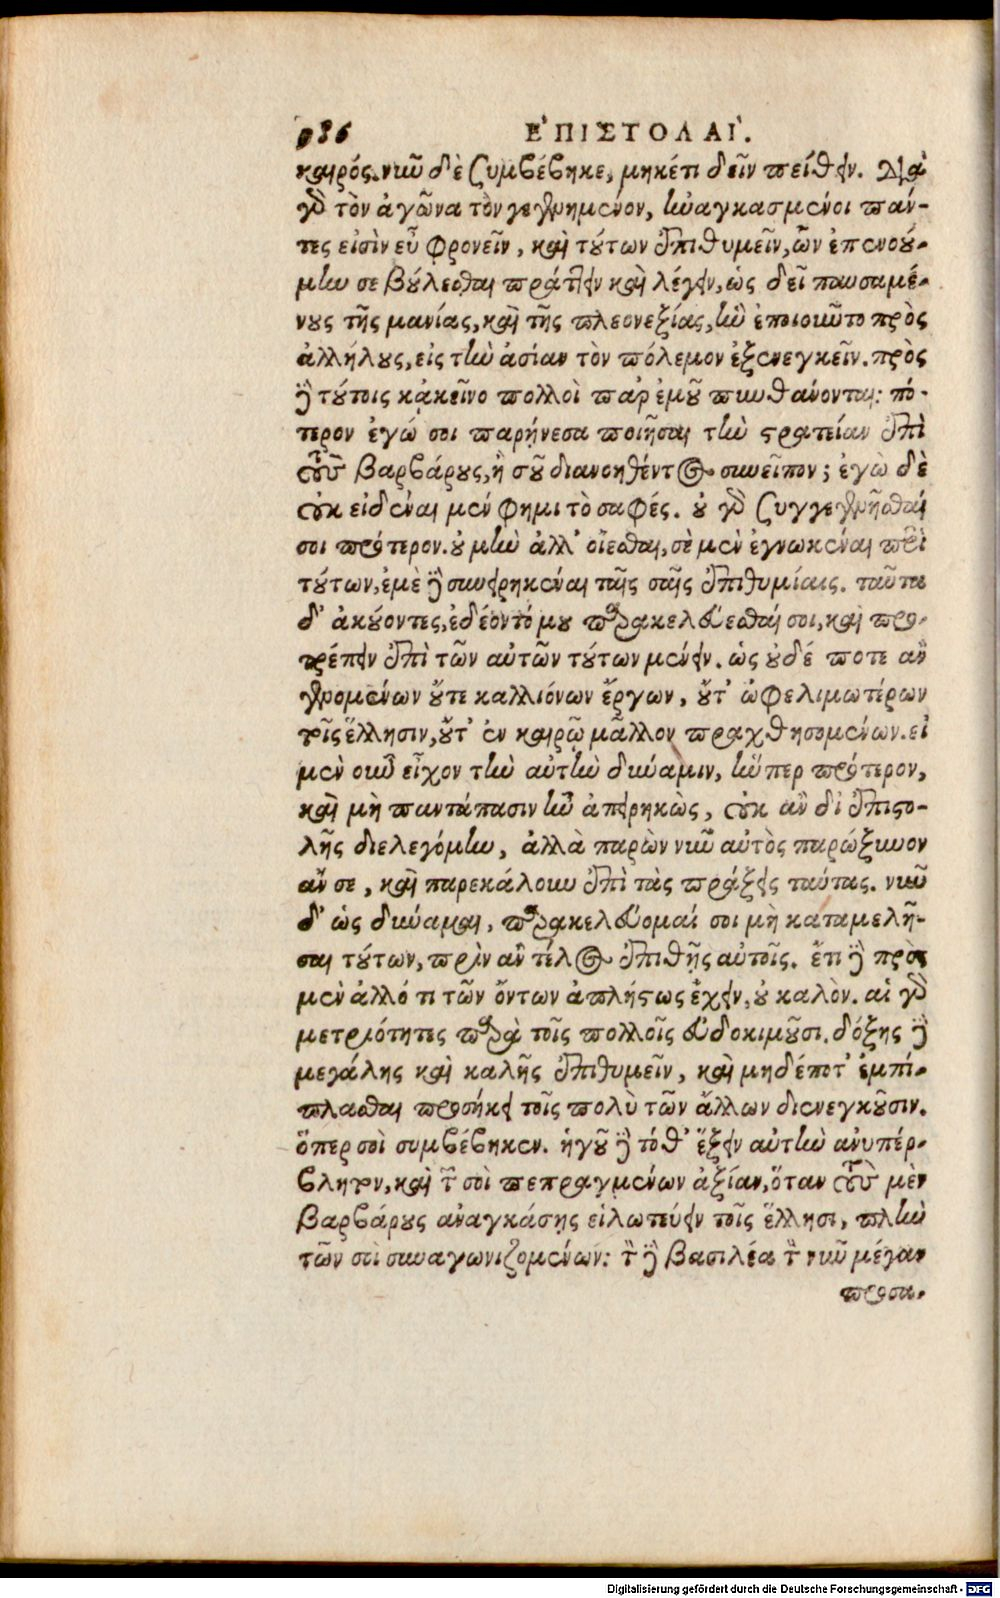 986 ἘΠΙΣΤΟΛΑΙ.
καιρός. νῦν δὲ συμβέβηκε, μηκέτι δεῖν πείθειν. Διὰ
γὰρ τὸν ἀγῶνα τὸν γεγενημένον, ἠναγκασμένοι πάν-
τες εἰσὶν εὖ φρονεῖν, καὶ τούτων ἐπιθυμεῖν, ὧν ἐπενοού-
μην σε βούλεσθαι πράττειν καὶ λέγειν, ὡς δεῖ παυσαμέ-
νους τῆς μανίας, καὶ τῆς πλεονεξίας, ἣν ἐποιοῦντο πρὸς
ἀλλήλους, εἰς τὴν ἀσίαν τὸν πόλεμον ἐξενεγκεῖν. πρὸς
δὲ τούτοις κἀκεῖνο πολλοὶ παρ' ἐμοῦ πυνθάνονται: πό-
τερον ἐγώ σοι παρῄνεσα ποιῆσαι τὴν στρατείαν ἐπὶ
τοὺς βαρβάρους, ἢ σοῦ διανοηθέντος συνεῖπον; ἐγὼ δὲ
οὐκ εἰδέναι μέν φημι τὸ σαφές. οὐ γὰρ συγγεγενῆσθαί
σοι πρότερον. οὐ μὴν ἀλλ' οἴεσθαι, σὲ μὲν ἐγνωκέναι περὶ
τούτων, ἐμὲ δὲ συνειρηκέναι ταῖς σαῖς ἐπιθυμίαις. ταῦτα
δ' ἀκούοντες, ἐδέοντό μου παρακελεύεσθαί σοι, καὶ προ-
τρέπειν ἐπὶ τῶν αὐτῶν τούτων μένειν. ὡς οὐδέ ποτε ἂν
γενομένων οὔτε καλλιόνων ἔργων, οὔτ' ὠφελιμωτέρων
τοῖς ἕλλησιν, οὔτ' ἐν καιρῷ μᾶλλον πραχθησομένων. εἰ
μὲν οὖν εἶχον τὴν αὐτὴν δύναμιν, ἥνπερ πρότερον,
καὶ μὴ παντάπασιν ἦν ἀπειρηκὼς, οὐκ ἂν δι' ἐπιστο-
λῆς διελεγόμην, ἀλλὰ παρὼν νῦν αὐτὸς παρώξυνον
ἄν σε, καὶ παρεκάλουν ἐπὶ τὰς πράξεις ταύτας. νῦν
δ' ὡς δύναμαι, παρακελεύομαί σοι μὴ καταμελῆ-
σαι τούτων, πρὶν ἂν τέλος ἐπιθῇς αὐτοῖς. ἔτι δὲ πρὸς
μὲν ἄλλό τι τῶν ὄντων ἀπλήστως ἔχειν, οὐ καλὸν. αἱ γὰρ
μετριότητες παρὰ τοῖς πολλοῖς εὐδοκιμοῦσι. δόξης δὲ
μεγάλης καὶ καλῆς ἐπιθυμεῖν, καὶ μηδέποτ' ἐμπί-
πλασθαι προσήκει τοῖς πολὺ τῶν ἄλλων διενεγκοῦσιν.
ὅπερ σοὶ συμβέβηκεν. ἡγοῦ δὲ τόθ' ἕξειν αὐτὴν ἀνυπέρ-
βλητον, καὶ τῶν σοὶ πεπραγμένων ἀξίαν, ὅταν τοὺς μὲν
βαρβάρους ἀναγκάσῃς εἱλωτεύειν τοῖς ἕλλησι, πλὴν
τῶν σοὶ συναγωνιζομένων: τὸν δὲ βασιλέα τὸν νῦν μέγαν
προσα-
Digitalisierung gefördert durch die Deutsche Forschungsgemeinschaft - DFG